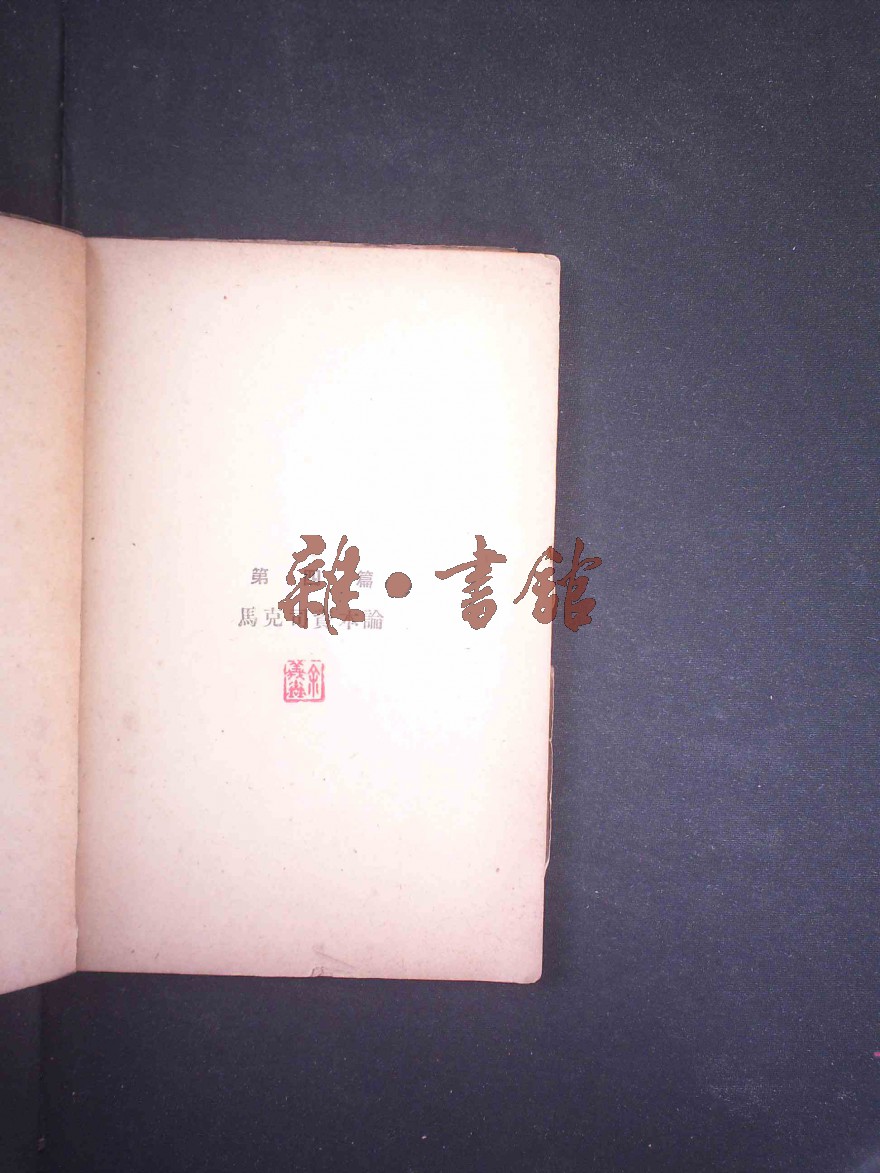 第 四 篇
雜·書館
馬克司資本論